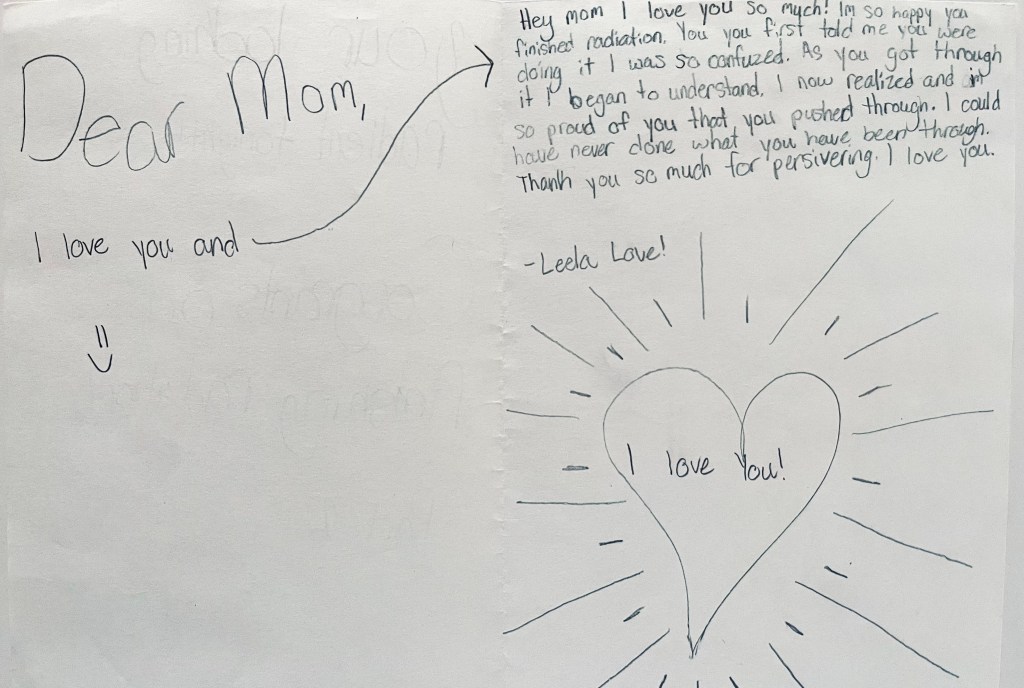 Dear Mom,
I love you and
Hey mom I love you so much! Im so happy you
finished radiation. You you first told me you were
doing it I was so confuzed. As you got through
it I began to understand. I now realized and im
so proud of you that you pushed through. I could
have never done what you have been through.
Thank you so much for persivering. I love you.
-Leela Love!
I love You!